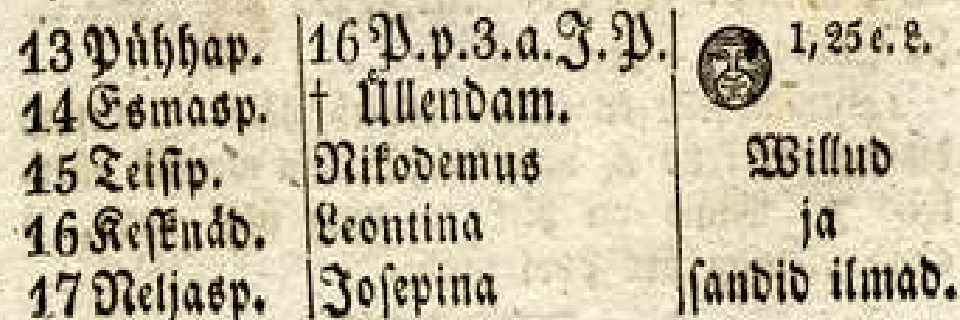 13 Pühhap. 16 P.p.3.a.J.P. 1,25 e. L.
14 Esmasp. † Üllendam.
15 Teisip. Nikodemus Willud
16 Keskнäd. Leontina ja
17 Neljasp. Josepina sandid ilmad.